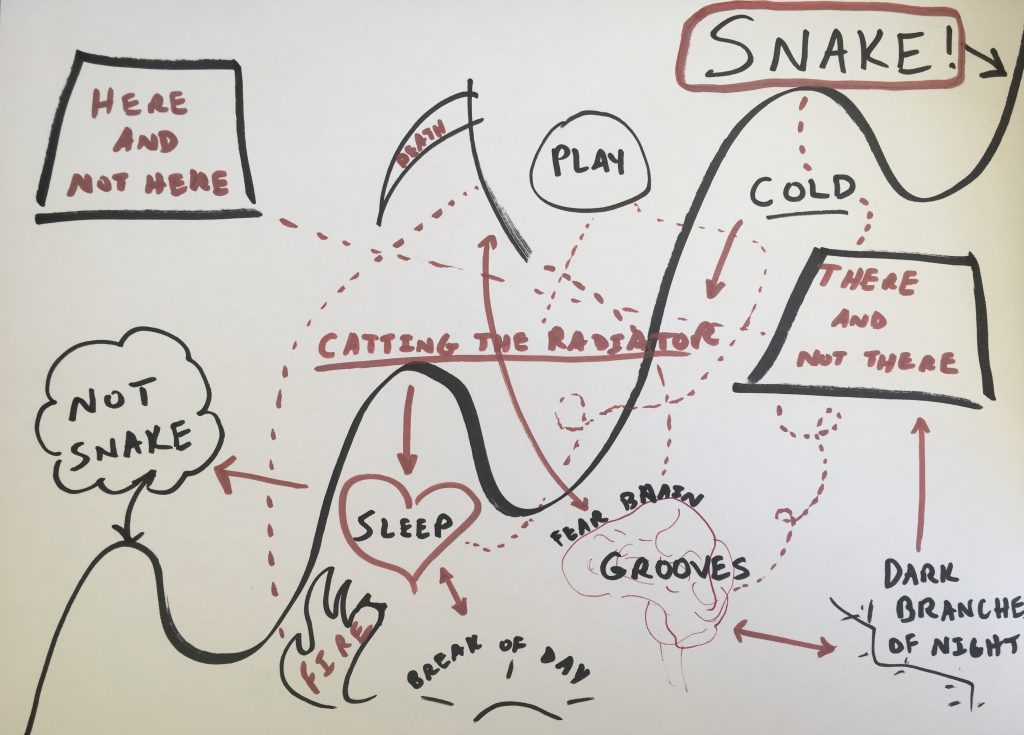 SNAKE!
HERE
AND
NOT HERE
DEATH
PLAY
COLD
THERE
AND
NOT THERE
CATTING THE RADIATOR
NOT
SNAKE
SLEEP
FEAR BRAIN
GROOVES
DARK
BRANCHES
OF NIGHT
FIRE
BREAK OF DAY